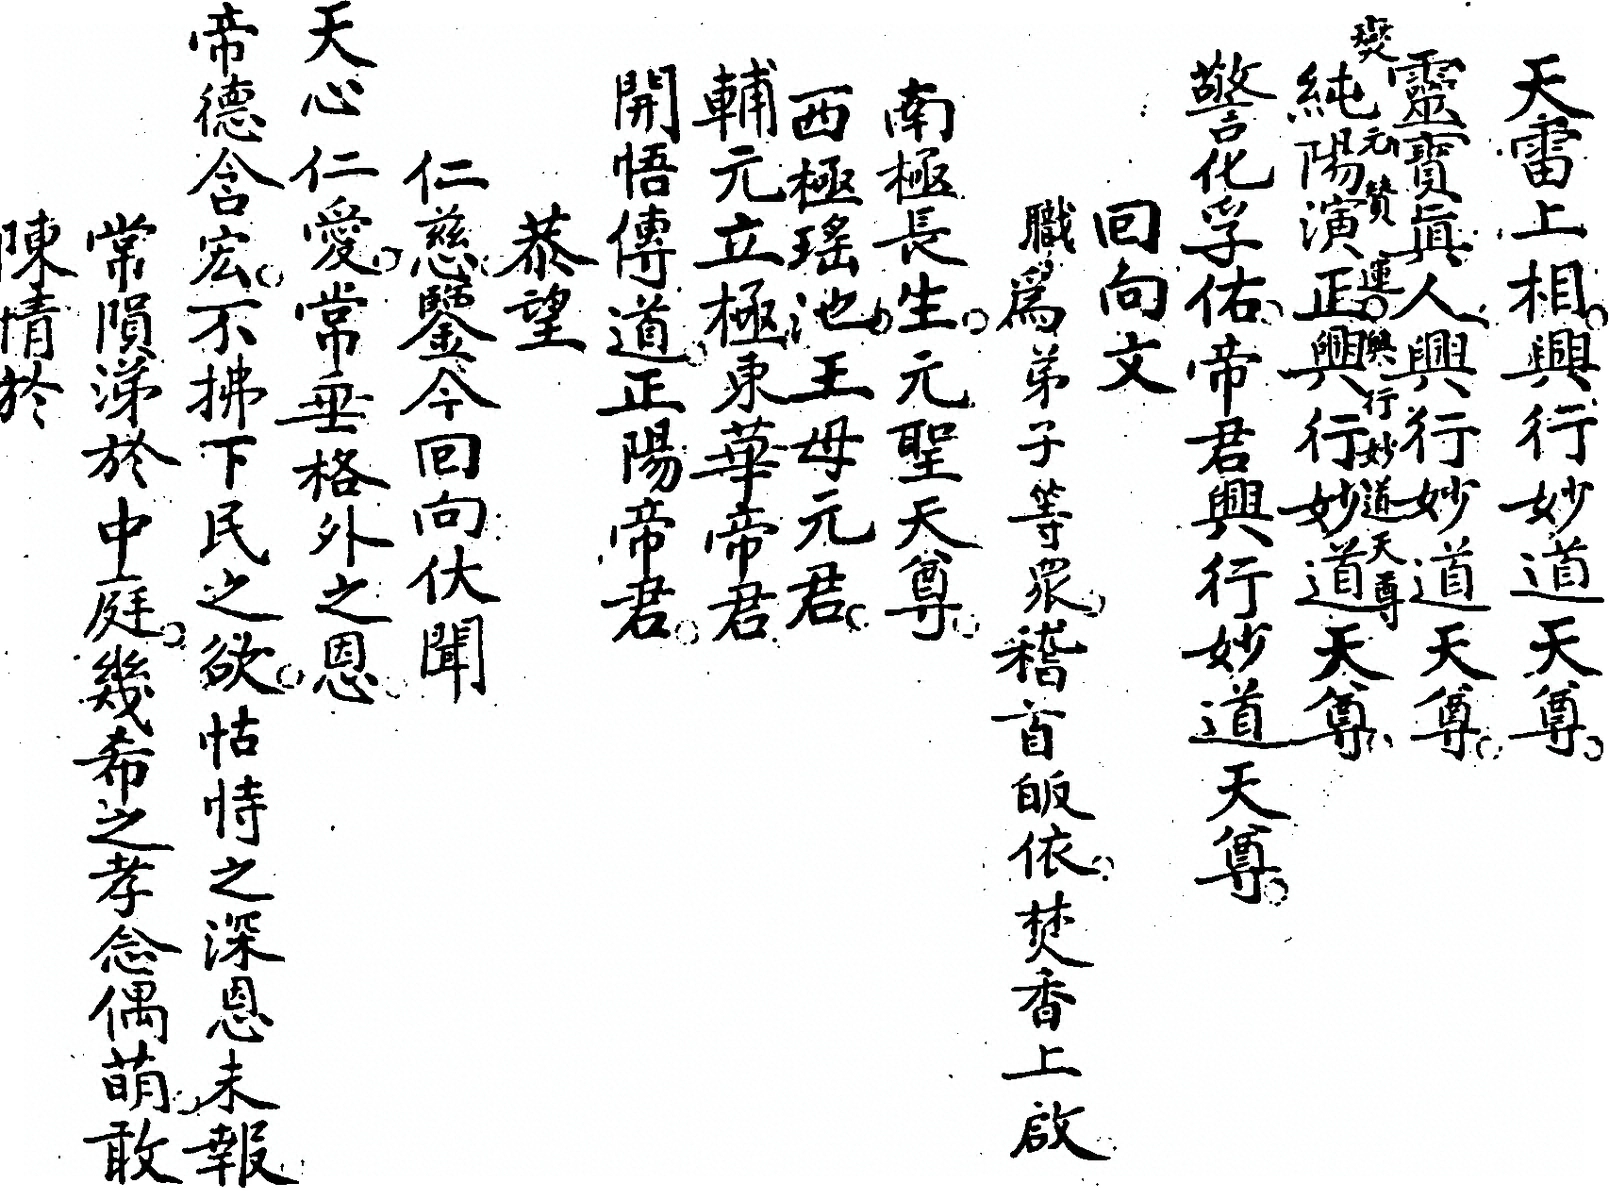 天雷上相。興行妙道天尊。
靈寶真人興行妙道天尊。
燮元贊運。興行妙道天尊
純陽演正興行妙道天尊。
警化孚佑。帝君興行妙道天尊。
回向文
職爲弟子等眾。稽首皈依。焚香上啟。
南極長生。元聖天尊。
西極瑤池。王母元君。
輔元立極東華帝君
開悟傳道。正陽帝君。
恭望
仁慈。鑒今回向伏聞
天心仁愛。常垂格外之恩。
帝德含宏。不拂下民之欲。怙恃之深恩未報。
常隕涕於中庭。幾希之孝念偶萌。敢
陳情於